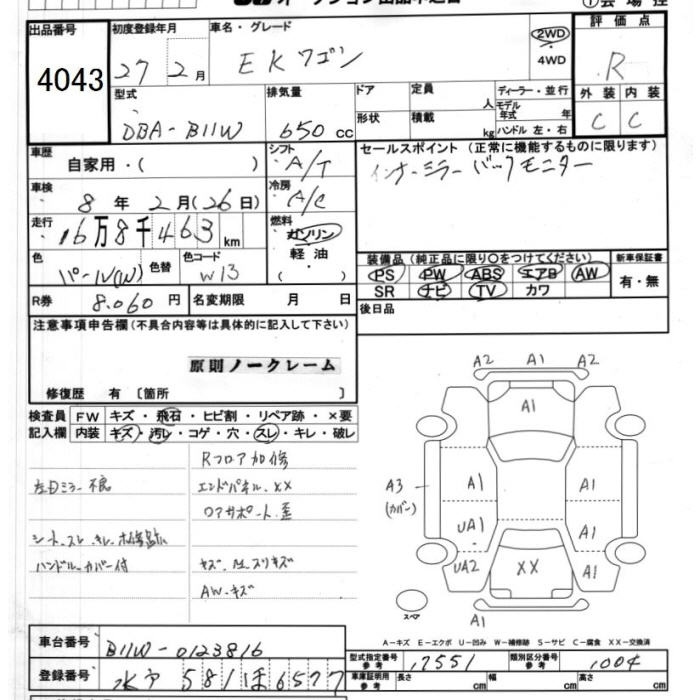 出品番号
4043
初度登録年月
27 2月
車名・グレード
EKワゴン
2WD
4WD
評価点
R
外装 内装
C C
型式
DBA-B11W
排気量
650 cc
ドア
形状
定員 人
積載 kg
ディーラー・並行
モデル年式 年
ハンドル 左・右
車歴
自家用・( )
シフト
A/T
セールスポイント (正常に機能するものに限ります)
インナーミラー バックモニター
車検
8年 2月(26日)
冷房
A/C
走行
16万8千463 km
燃料
ガソリン
軽油
( )
色
パール(W) 色替
色コード
W13
装備品 (純正品に限り○をつけてください)
PS PW ABS エアB AW
SR ナビ TV カワ
新車保証書
有・無
R券 8.060円
名変期限 月 日
後日品
注意事項申告欄(不具合内容等は具体的に記入して下さい)
原則ノークレーム
修復歴 有 〔箇所 〕
検査員記入欄
FW キズ・飛石・ヒビ割・リペア跡・×要
内装 キズ・汚レ・コゲ・穴・スレ・キレ・破レ
Rフロア加修
左Dミラー不良
エンドパネル.XX
ロアサポート.歪
シート.スレ
ハンドル.カバー付
AW.キズ
A2 A1 A2
A1
A3
(カバー)
A1 A1
UA1 A1
UA2 XX A1
スペア
A1
A-キズ E-エクボ U-凹み W-補修跡 S-サビ C-腐食 XX-交換済
車台番号
B11W-0123816
型式指定番号
参考
17551
類別区分番号
参考
1004
登録番号
水戸 581ほ6577
車庫証明用
参考
長さ cm
幅 cm
高さ cm